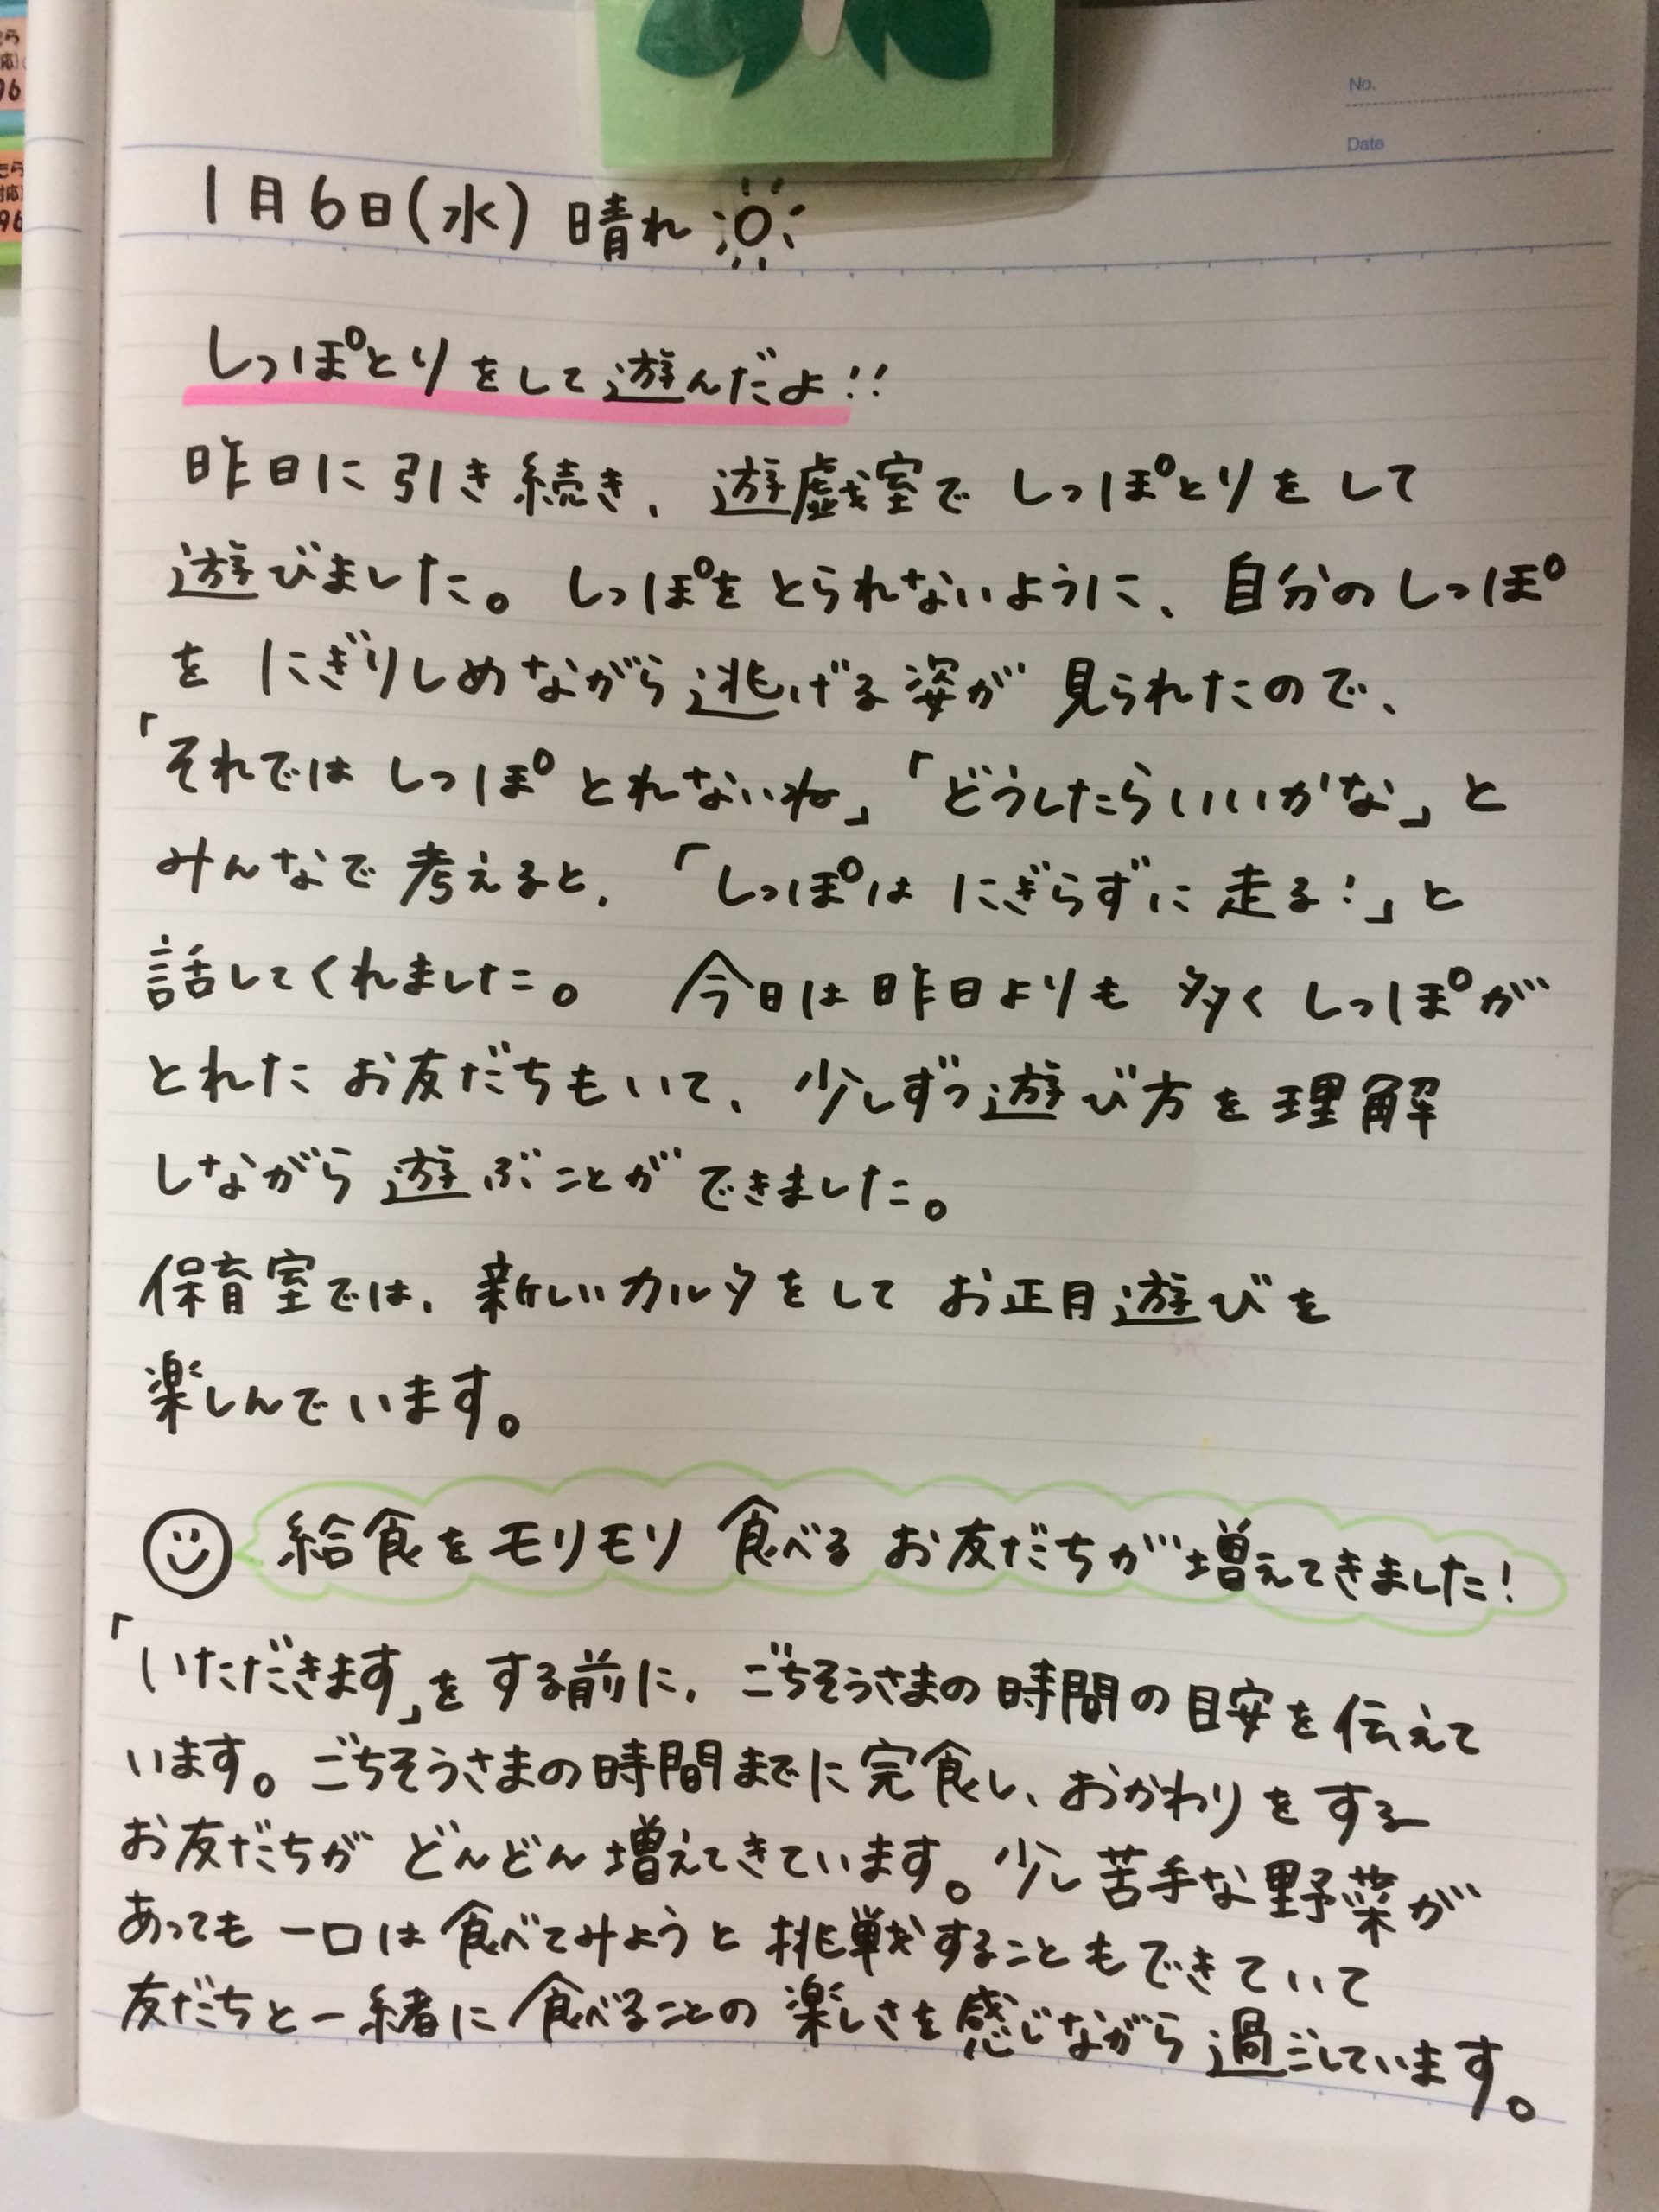 No.
Date
1月6日(水) 晴れ
しっぽとりをして遊んだよ!!
昨日に引き続き、遊戯室でしっぽとりをして
遊びました。しっぽをとられないように、自分のしっぽ
を にぎりしめながら逃げる姿が 見られたので、
「それでは しっぽ とれないね」「どうしたらいいかな」と
みんなで考えると、「しっぽは にぎらずに 走る!」と
話してくれました。 今日は昨日よりも 多く しっぽが
とれた お友だちもいて、少しずつ遊び方を理解
しながら 遊ぶことができました。
保育室では、新しいカルタをして お正月遊びを
楽しんでいます。
給食をモリモリ 食べる お友だちが増えてきました!
「いただきます」を する前に、ごちそうさまの時間の目安を伝えて
います。ごちそうさまの時間までに完食し、おかわりをする
お友だちが どんどん増えてきています。少し苦手な野菜が
あっても 一口は 食べてみようと 挑戦することもできていて
友だちと一緒に 食べることの 楽しさを感じながら過ごしています。